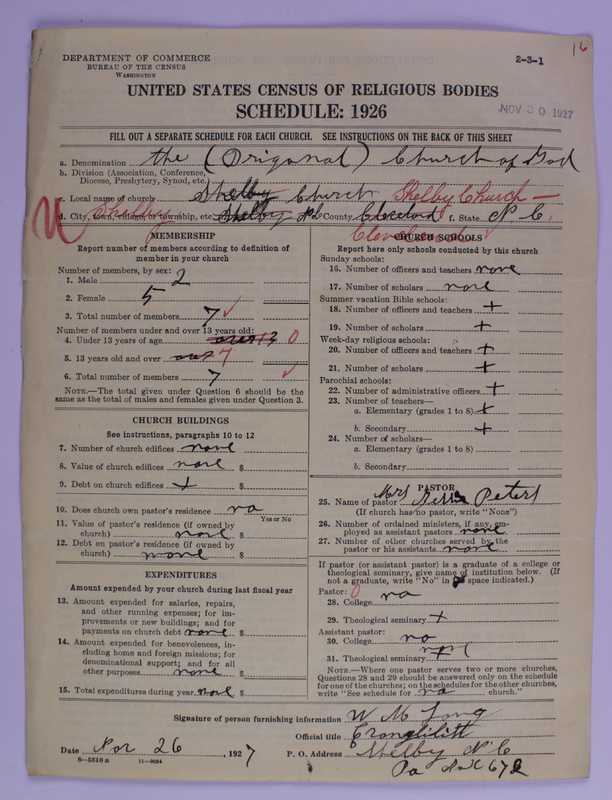 16
DEPARTMENT OF COMMERCE
BUREAU OF THE CENSUS
WASHINGTON
2-3-1
UNITED STATES CENSUS OF RELIGIOUS BODIES
SCHEDULE: 1926
NOV 30 1927
FILL OUT A SEPARATE SCHEDULE FOR EACH CHURCH. SEE INSTRUCTIONS ON THE BACK OF THIS SHEET
a. Denomination the (Origonal) Church of God
b. Division (Association, Conference, Diocese, Presbytery, Synod, etc.)
c. Local name of church Shelby Church Shelby Church
d. City, town, village, or township, etc. Shelby Shelby N C e. County Cleveland f. State N C.
Cleveland
MEMBERSHIP
Report number of members according to definition of
member in your church
Number of members, by sex:
1. Male 2
2. Female 5
3. Total number of members 7
Number of members under and over 13 years old:
4. Under 13 years of age over 13 0
5. 13 years old and over over 7
6. Total number of members 7
NOTE.—The total given under Question 6 should be
same as the total of males and females given under Question 3.
CHURCH BUILDINGS
See instructions, paragraphs 10 to 12
7. Number of church edifices none
8. Value of church edifices none $
9. Debt on church edifices + $
10. Does church own pastor's residence no
Yes or No
11. Value of pastor's residence (if owned by
church) none $
12. Debt on pastor's residence (if owned by
church) none $
EXPENDITURES
Amount expended by your church during last fiscal year
13. Amount expended for salaries, repairs,
and other running expenses; for im-
provements or new buildings; and for
payments on church debt none $
14. Amount expended for benevolences, in-
cluding home and foreign missions; for
denominational support; and for all
other purposes none $
15. Total expenditures during year none $
CHURCH SCHOOLS
Report here only schools conducted by this church
Sunday schools:
16. Number of officers and teachers none
17. Number of scholars none
Summer vacation Bible schools:
18. Number of officers and teachers +
19. Number of scholars +
Week-day religious schools:
20. Number of officers and teachers +
21. Number of scholars +
Parochial schools:
22. Number of administrative officers +
23. Number of teachers—
a. Elementary (grades 1 to 8) +
b. Secondary +
24. Number of scholars—
a. Elementary (grades 1 to 8)
b. Secondary
PASTOR
25. Name of pastor Mrs Peters
(If church has no pastor, write "None")
26. Number of ordained ministers, if any, em-
ployed as assistant pastors none
27. Number of other churches served by the
pastor or his assistants none
If pastor (or assistant pastor) is a graduate of a college or
theological seminary, give name of institution below. (If
not a graduate, write "No" in space indicated.)
Pastor: 0
28. College no
29. Theological seminary +
Assistant pastor:
30. College no
31. Theological seminary none
NOTE.—Where one pastor serves two or more churches,
Questions 28 and 29 should be answered only on the schedule
for one of the churches; on the schedules for the other churches,
write "See schedule for no church."
Signature of person furnishing information W M Long
Official title
Date Nov 26, 1927 P. O. Address Shelby N C
8—5518a 11—9084
Po Box 672